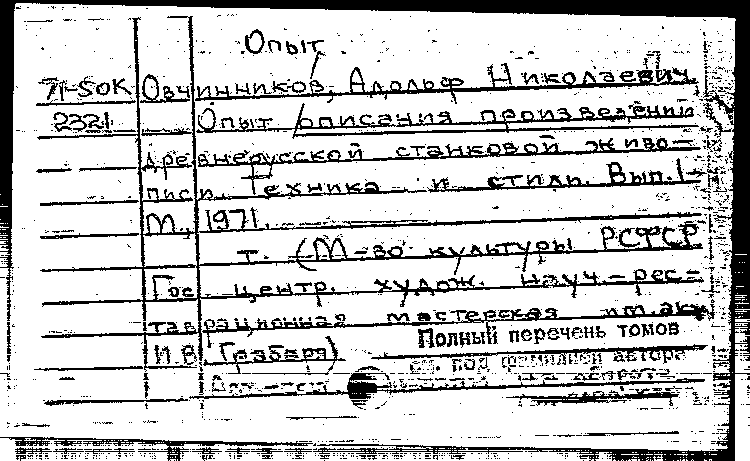 Опыт
71-50К Овчинников, Адольф Николаевич.
2321 Опыт описания произведений
древнерусской станковой живо-
писи. Техника и стиль. Вып. 1-
М., 1971.
т. (М-во культуры РСФСР
Гос центр. худож. науч.-рес-
таврационная мастерская им. акад
И.Э. Грабаря)
Полный перечень томов
см. под фамилией автора